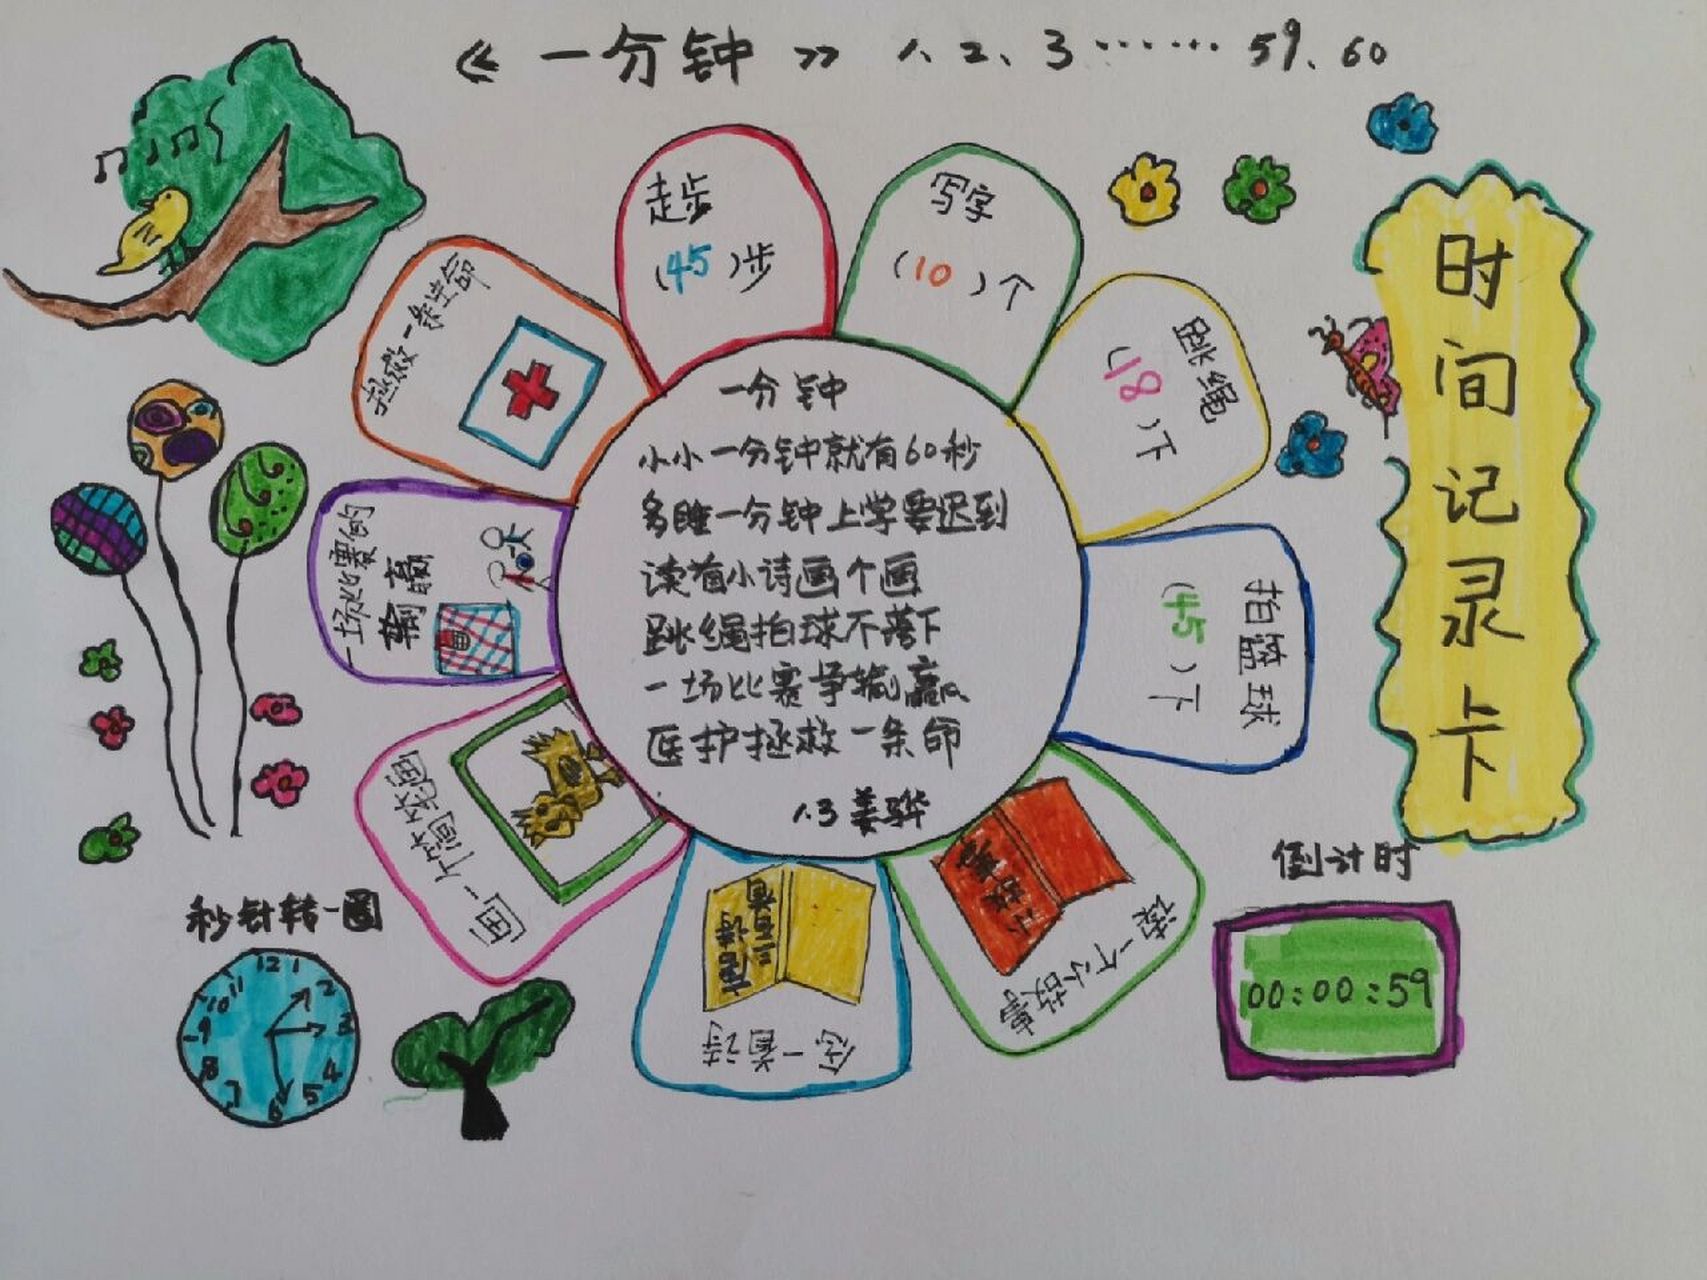 《一分钟》 1、2、3……59、60
时间记录卡
走步
(45)步
写字
(10)个
跳绳
(18)下
拍篮球
(45)下
读一个小故事
小故事
念一首诗
唐诗
三百首
画一个简笔画
一场比赛的
输赢
拯救一条生命
一分钟
小小一分钟就有60秒
多睡一分钟上学要迟到
读首小诗画个画
跳绳拍球不落下
一场比赛争输赢
医护拯救一条命
1.3 姜骅
秒针转一圈
12 1 2 3 4 5 6 7 8 9 10 11
倒计时
00:00:59